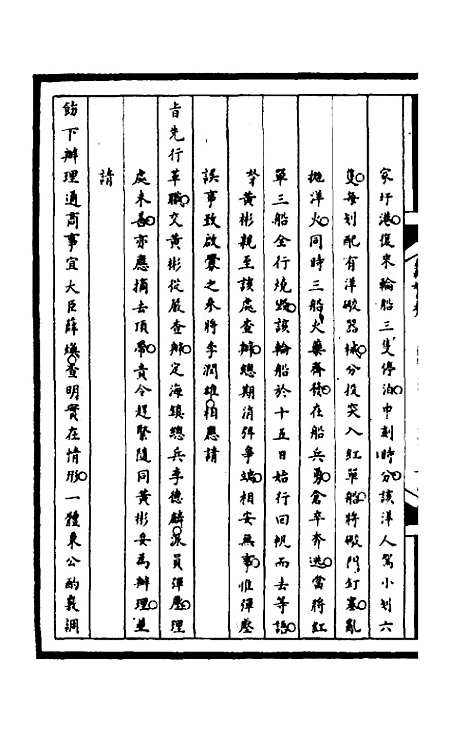 家圩港復來輪船三隻停泊申刻時分該洋人駕小划六
隻每划配有洋礮器械分投突入紅單船將礮門釘塞亂
拋洋火同時三船火藥齊發在船兵勇倉卒奔逃當將紅
單三船全行燒燬該輪船於十五日始行回帆而去等語
黃彬親至該處查辦總期消弭爭端相安無事惟彈壓
誤事致啟釁之參將李潤雄相應請
旨先行革職交黃彬從嚴查辦定海鎮總兵李德麟派員彈壓理
處未善亦應摘去頂帶責令趕緊隨同黃彬妥為辦理並
請
飭下辦理通商事宜大臣薛煥查明實在情形一體秉公酌議調